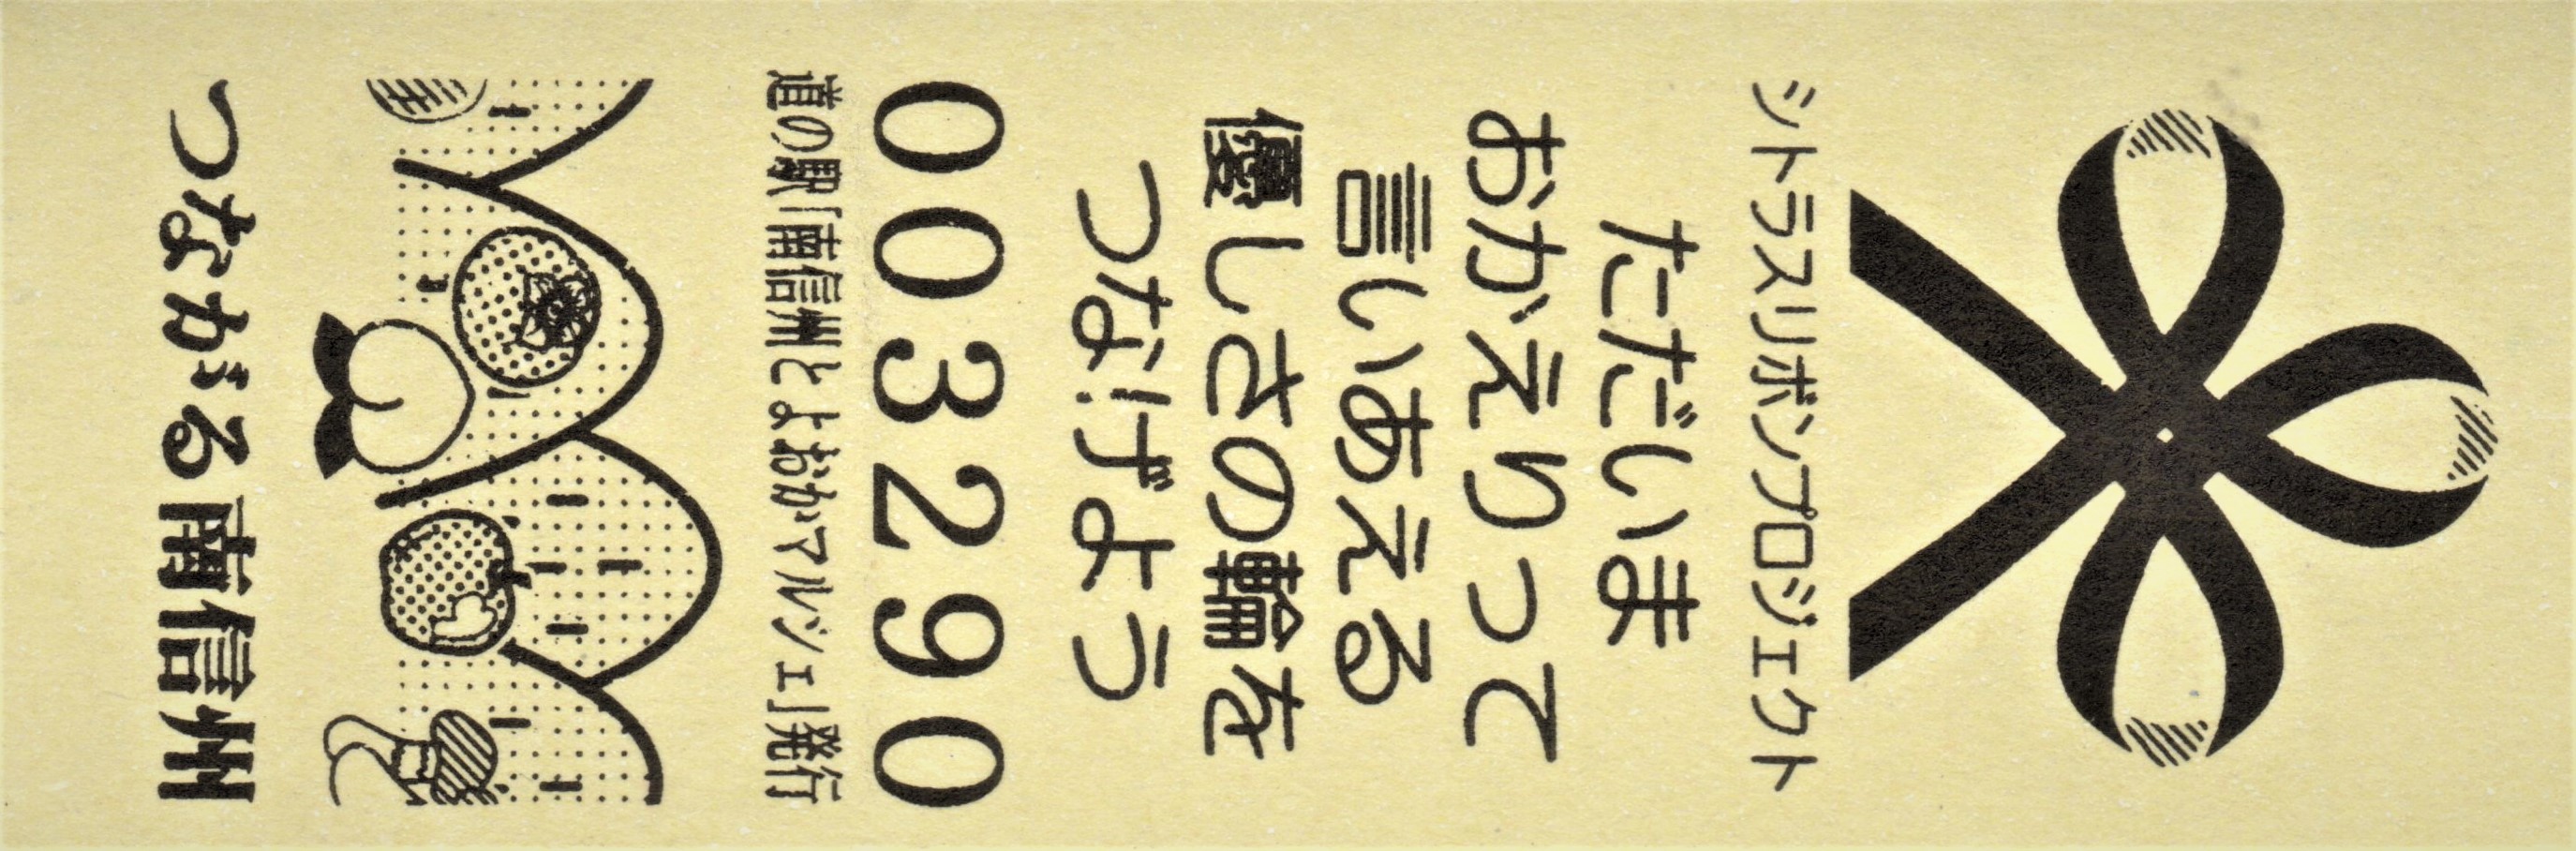 シトラスリボンプロジェクト
ただいま
おかえりって
言いあえる
優しさの輪を
つなげよう
003290
道の駅「南信州とよおかマルシェ」発行
つながる南信州